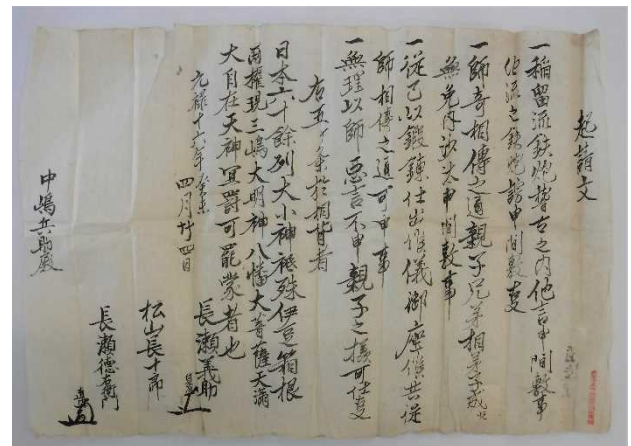 起請文
一稲留流鉄炮稽古之内他言申間敷事
他流之鉄炮謗申間敷事
一師ゟ相傳之通親子兄弟相弟子成共
無免内試太申間敷事
一従己以鍛錬仕出候儀御座候共従
師相傳之通可申事
一無理以師悪言不申親子之様可仕事
右五ヶ条於相背者
日本六十餘列大小神祇殊伊豆箱根
両権現三嶋大明神八幡大菩薩天満
大自在天神冥罰可罷蒙者也
元禄十六年癸未
四月廿四日
長瀬義助
松山長十郎
長瀬徳右衛門
中嶋兵助殿